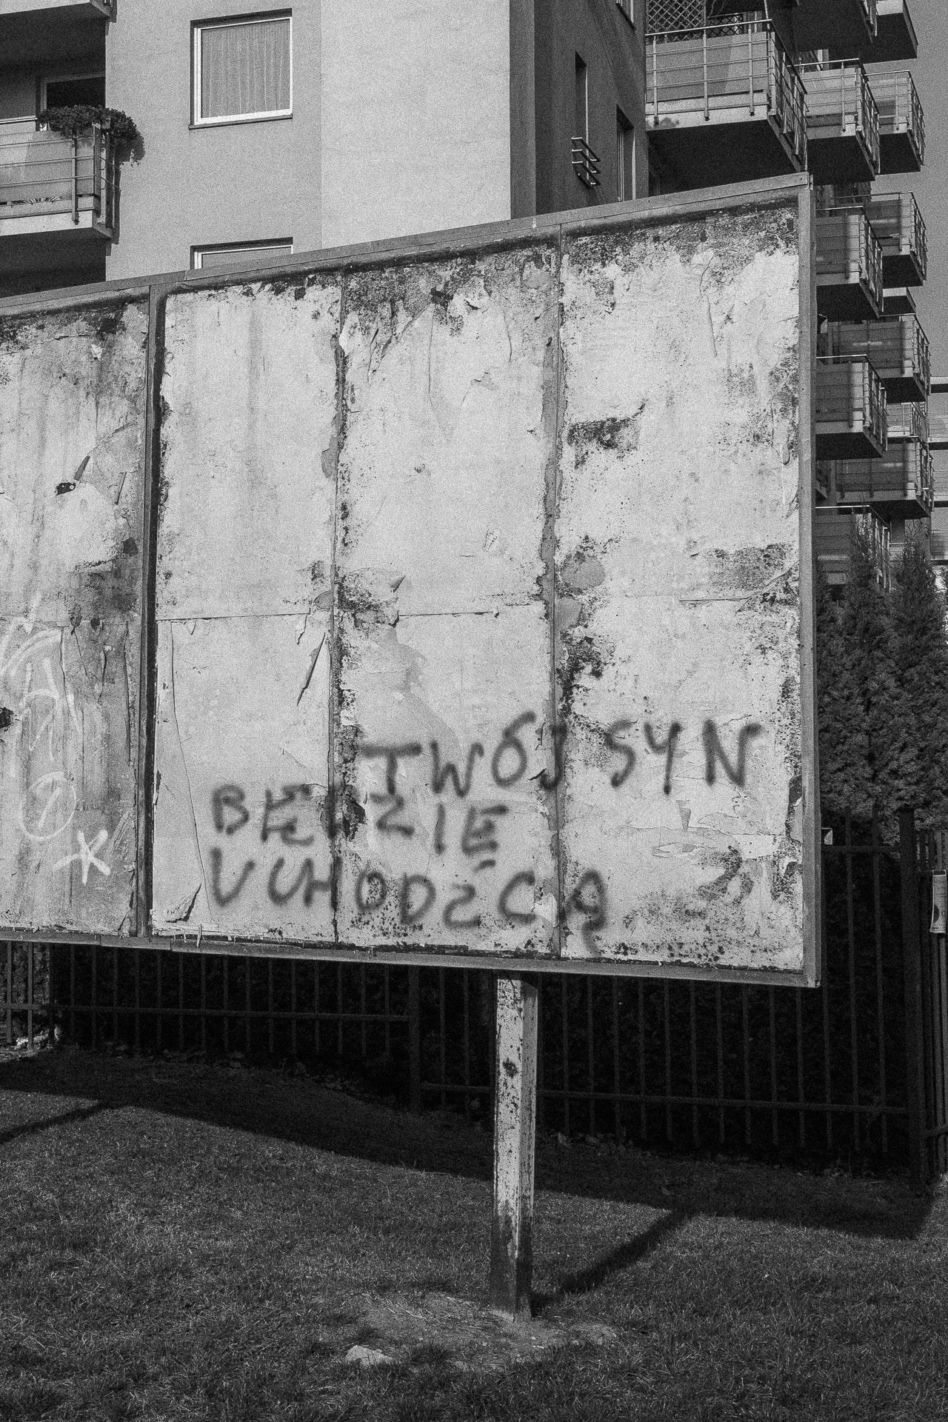 TWÓJ SYN
BĘDZIE
UCHODŹCĄ